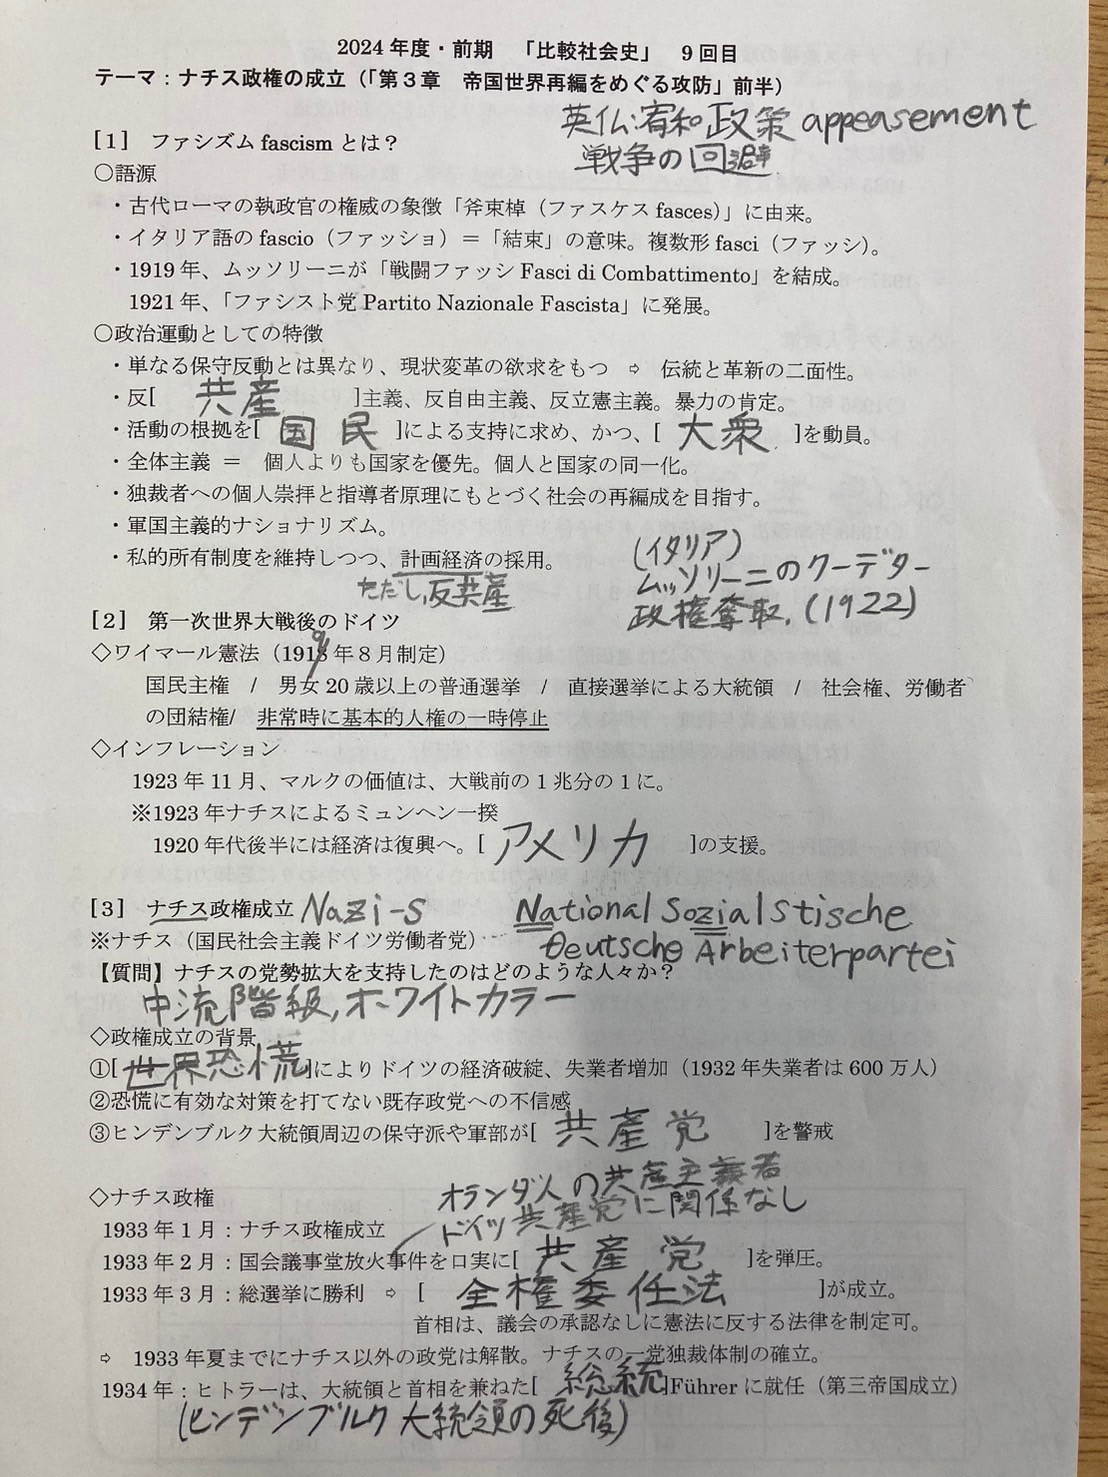 2024年度・前期　「比較社会史」　9回目
テーマ：ナチス政権の成立（「第３章　帝国世界再編をめぐる攻防」前半）
英仏:宥和政策 appeasement
戦争の回避
[1]　ファシズム fascism とは？
○語源
・古代ローマの執政官の権威の象徴「斧束棹（ファスケス fasces）」に由来。
・イタリア語の fascio（ファッショ）＝「結束」の意味。複数形 fasci（ファッシ）。
・1919年、ムッソリーニが「戦闘ファッシ Fasci di Combattimento」を結成。
1921年、「ファシスト党 Partito Nazionale Fascista」に発展。
○政治運動としての特徴
・単なる保守反動とは異なり、現状変革の欲求をもつ ⇨ 伝統と革新の二面性。
・反[ 共産 ]主義、反自由主義、反立憲主義。暴力の肯定。
・活動の根拠を[ 国民 ]による支持に求め、かつ、[ 大衆 ]を動員。
・全体主義 ＝ 個人よりも国家を優先。個人と国家の同一化。
・独裁者への個人崇拝と指導者原理にもとづく社会の再編成を目指す。
・軍国主義的ナショナリズム。
・私的所有制度を維持しつつ、計画経済の採用。
ただし、反共産
(イタリア)
ムッソリーニのクーデター
政権奪取.(1922)
[2]　第一次世界大戦後のドイツ
◇ワイマール憲法（1919年８月制定）
国民主権　/　男女20歳以上の普通選挙　/　直接選挙による大統領　/　社会権、労働者
の団結権/　非常時に基本的人権の一時停止
◇インフレーション
1923年11月、マルクの価値は、大戦前の１兆分の１に。
※1923年ナチスによるミュンヘン一揆
1920年代後半には経済は復興へ。[ アメリカ ]の支援。
[3]　ナチス政権成立 Nazi-s
National Sozialstische
Deutsche Arbeiterpartei
※ナチス（国民社会主義ドイツ労働者党）
【質問】ナチスの党勢拡大を支持したのはどのような人々か？
中流階級,ホワイトカラー
◇政権成立の背景
①[ 世界恐慌 ]によりドイツの経済破綻、失業者増加（1932年失業者は600万人）
②恐慌に有効な対策を打てない既存政党への不信感
③ヒンデンブルク大統領周辺の保守派や軍部が[ 共産党 ]を警戒
◇ナチス政権
オランダ人の共産主義者
ドイツ共産党に関係なし
1933年１月：ナチス政権成立
1933年２月：国会議事堂放火事件を口実に[ 共産党 ]を弾圧。
1933年３月：総選挙に勝利 ⇨ [ 全権委任法 ]が成立。
首相は、議会の承認なしに憲法に反する法律を制定可。
⇨ 1933年夏までにナチス以外の政党は解散。ナチスの一党独裁体制の確立。
1934年：ヒトラーは、大統領と首相を兼ねた[ 総統 ]Führerに就任（第三帝国成立）
(ヒンデンブルク大統領の死後)